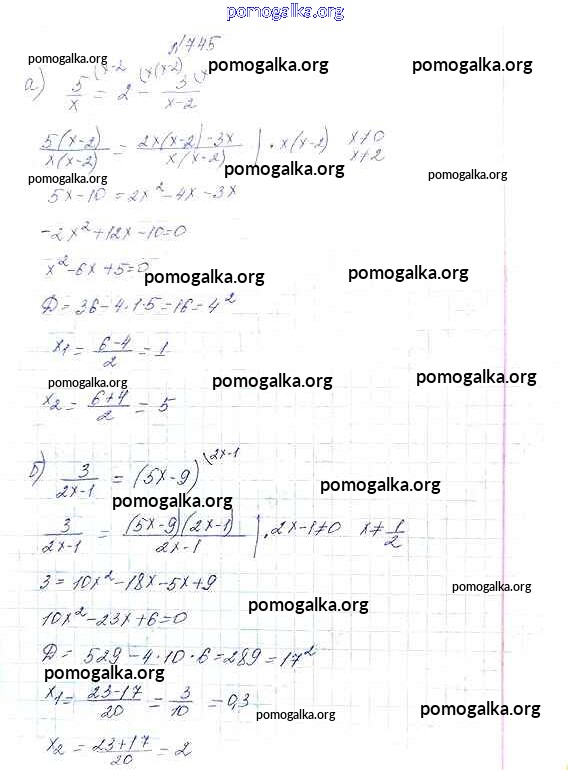 pomogalka.org
№745
pomogalka.org pomogalka.org pomogalka.org
а) 5/x (x-2 = 2 (x(x-2) - 3/(x-2) (x
5(x-2)/x(x-2) = 2x(x-2)-3x/x(x-2) | · x(x-2) x≠0 x≠2
pomogalka.org pomogalka.org pomogalka.org
5x-10=2x²-4x-3x
-2x²+12x-10=0
x²-6x+5=0
pomogalka.org pomogalka.org
D=36-4·1·5=16=4²
x₁=(6-4)/2=1
pomogalka.org pomogalka.org pomogalka.org
x₂=(6+4)/2=5
б) 3/(2x-1) = (5x-9) (2x-1
pomogalka.org pomogalka.org
3/(2x-1) = (5x-9)(2x-1)/(2x-1) | · 2x-1≠0 x≠1/2
3=10x²-18x-5x+9
pomogalka.org
10x²-23x+6=0
pomogalka.org
D=529-4·10·6=289=17²
pomogalka.org
x₁=(23-17)/20=3/10=0,3
pomogalka.org pomogalka.org
x₂=(23+17)/20=2